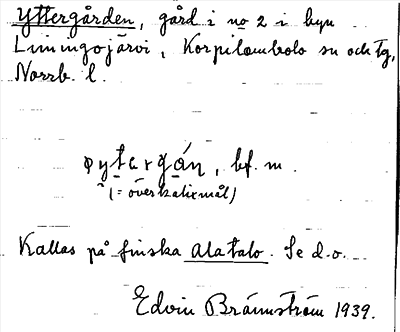 Yttergården, gård i no 2 i byn
Liiningojärvi, Korpilombolo sn och tg,
Norrb. l.
ytargán, bf. m.
(= överkalixmål)
Kallas på finska Alatalo. Se d.o.
Edvin Brännström 1939.